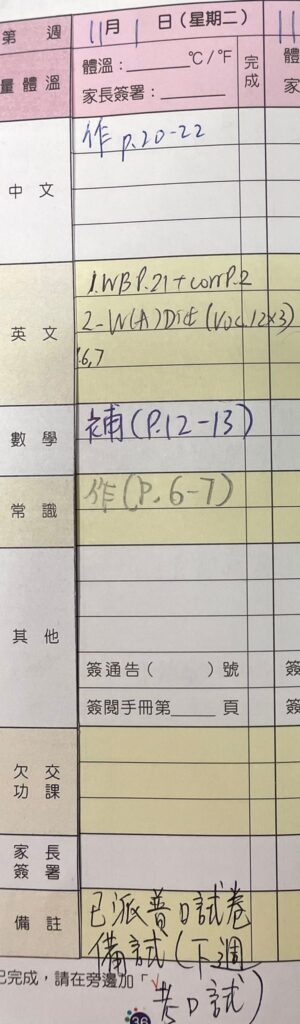 第 週 11月 1 日(星期二) 11
量體溫 體溫:______ °C/°F 完成
家長簽署:______ 家
中文 作 p.20-22
英文 1.WB P.21 + corr P.2
2-W(A)Dict (Voc.12x3)
6,7
數學 補(P.12-13)
常識 作(P.6-7)
其他
簽通告( )號 簽
簽閱手冊第____頁 簽
欠交功課
家長簽署
備註 已派普口試卷
備試(下週
考口試)
已完成,請在旁邊加「✓
36